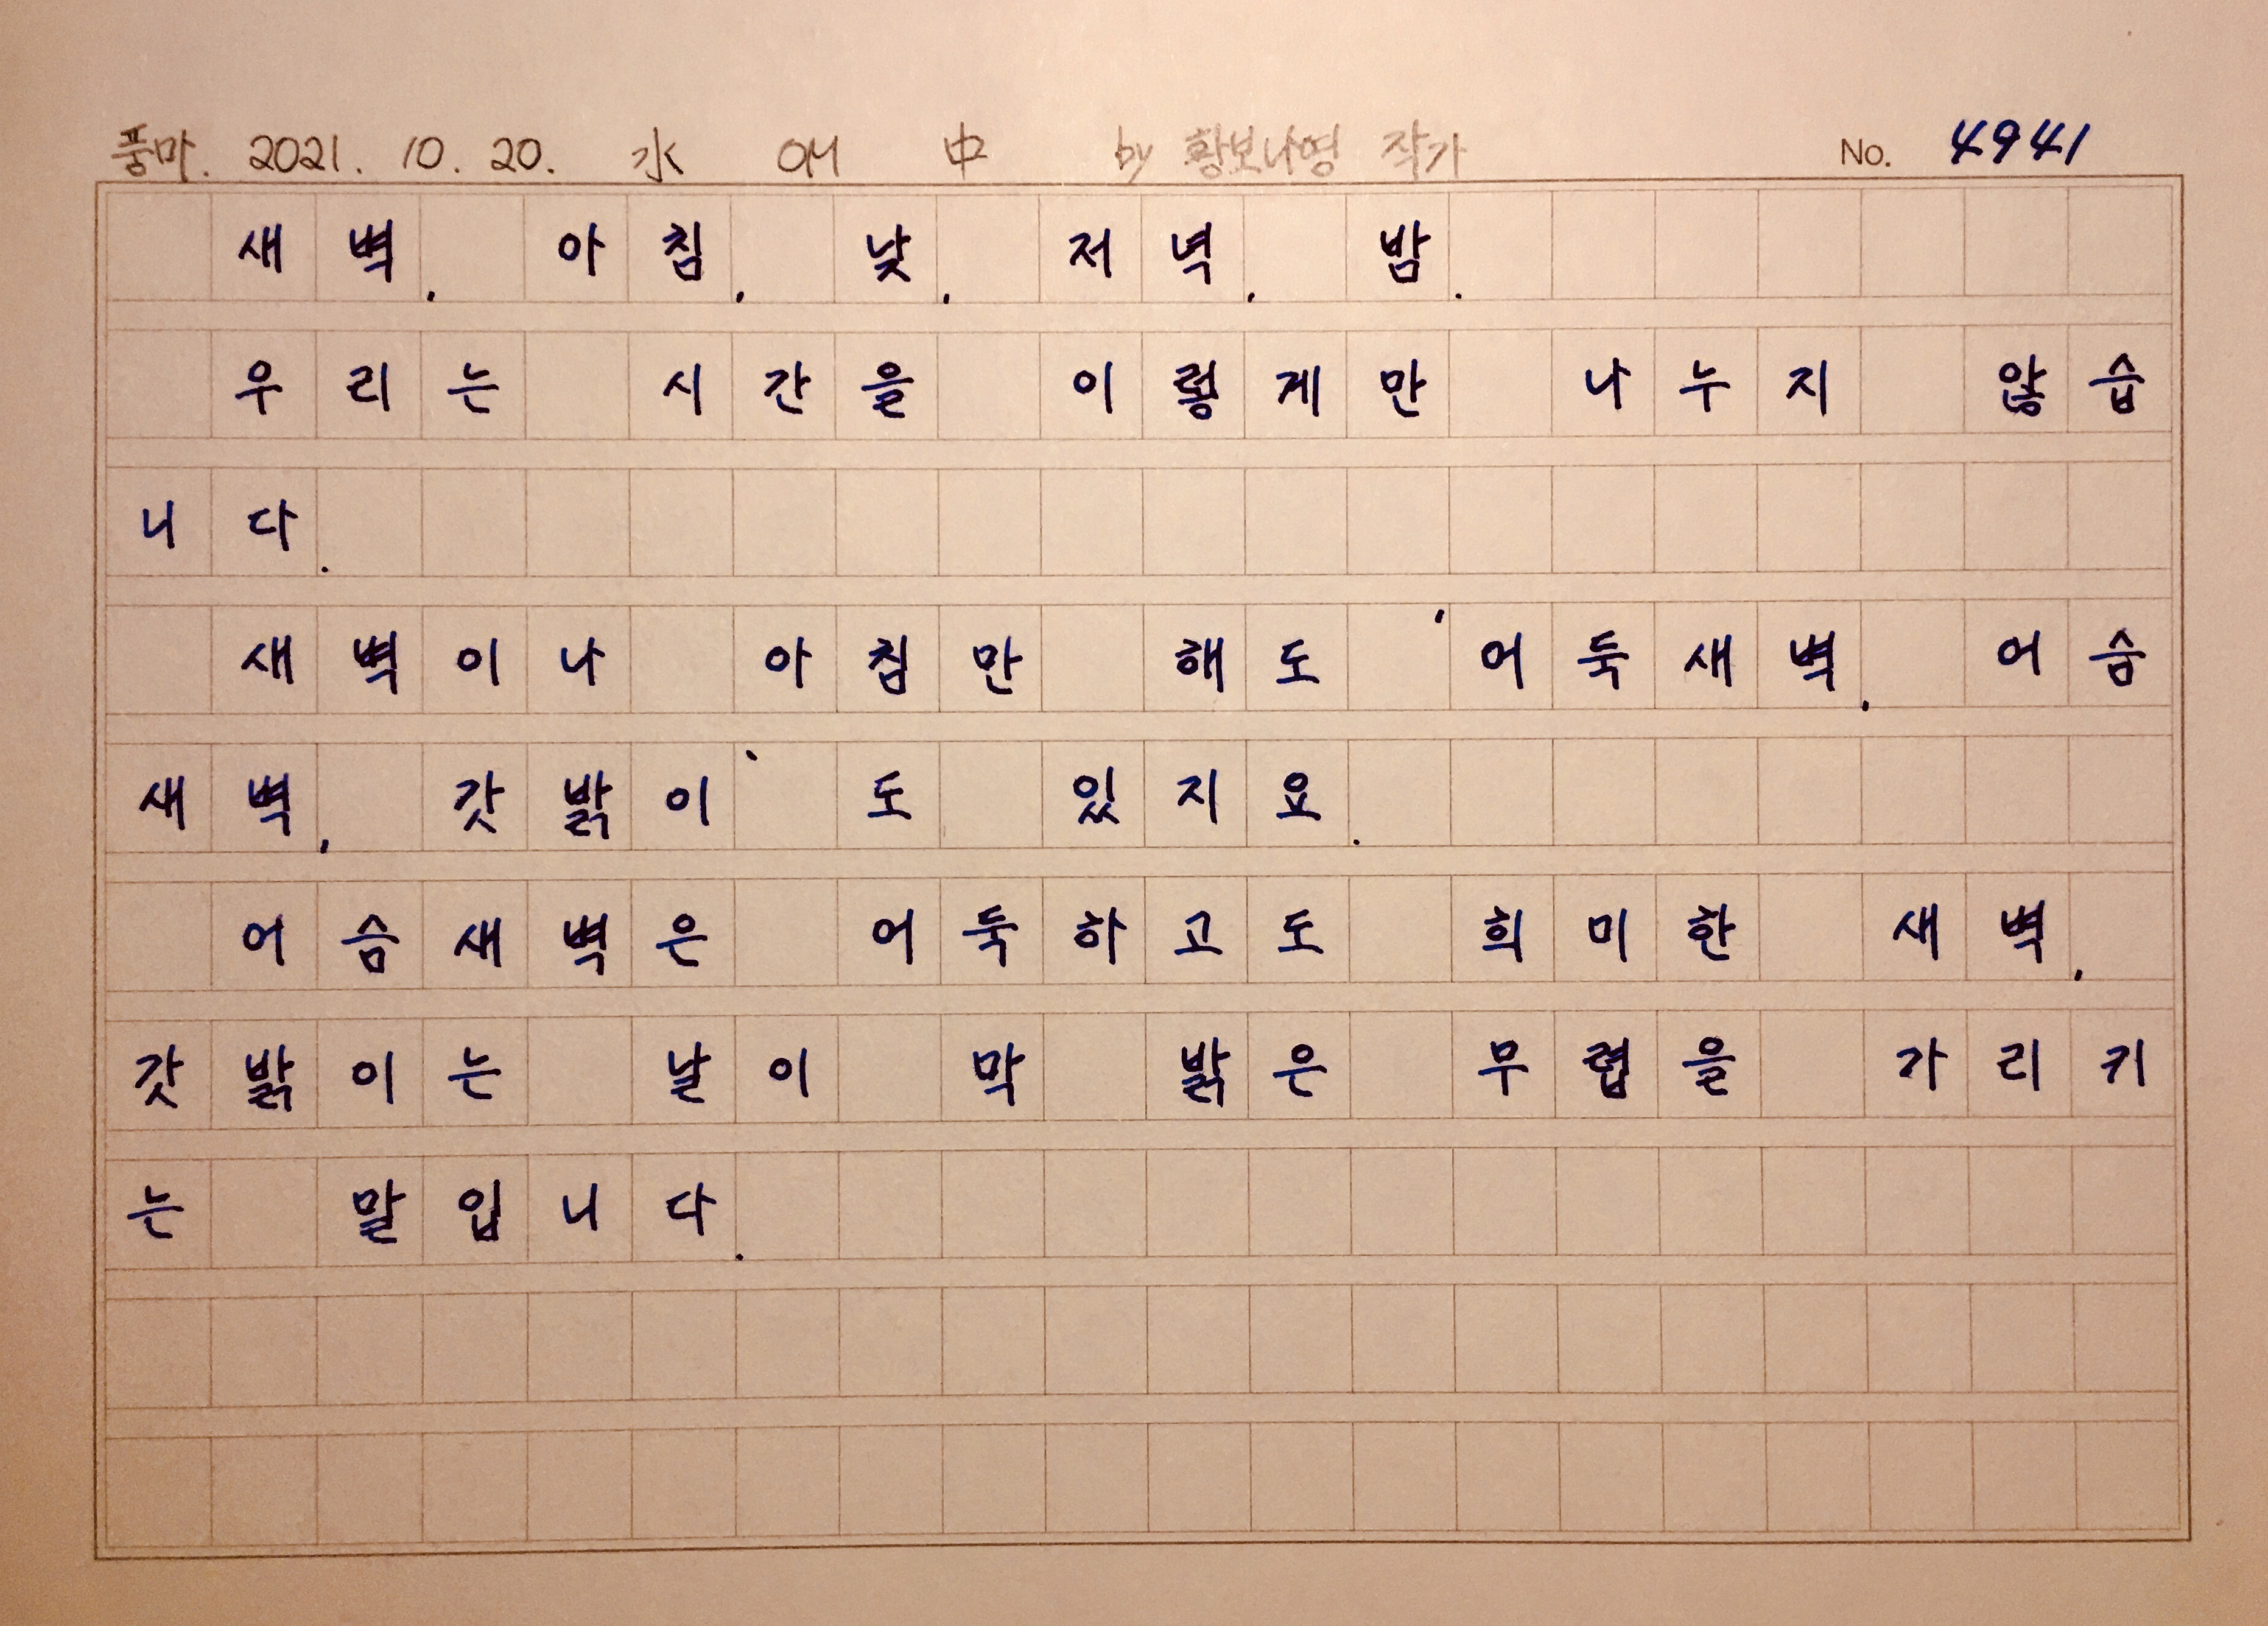 풍마. 2021. 10. 20. 水 OM 中 by 황보나영 작가 No. 4941
새벽, 아침, 낮, 저녁, 밤.
우리는 시간을 이렇게만 나누지 않습
니다.
새벽이나 아침만 해도 '어둑새벽, 어슴
새벽, 갓밝이'도 있지요.
어슴새벽은 어둑하고도 희미한 새벽,
갓밝이는 날이 막 밝은 무렵을 가리키
는 말입니다.